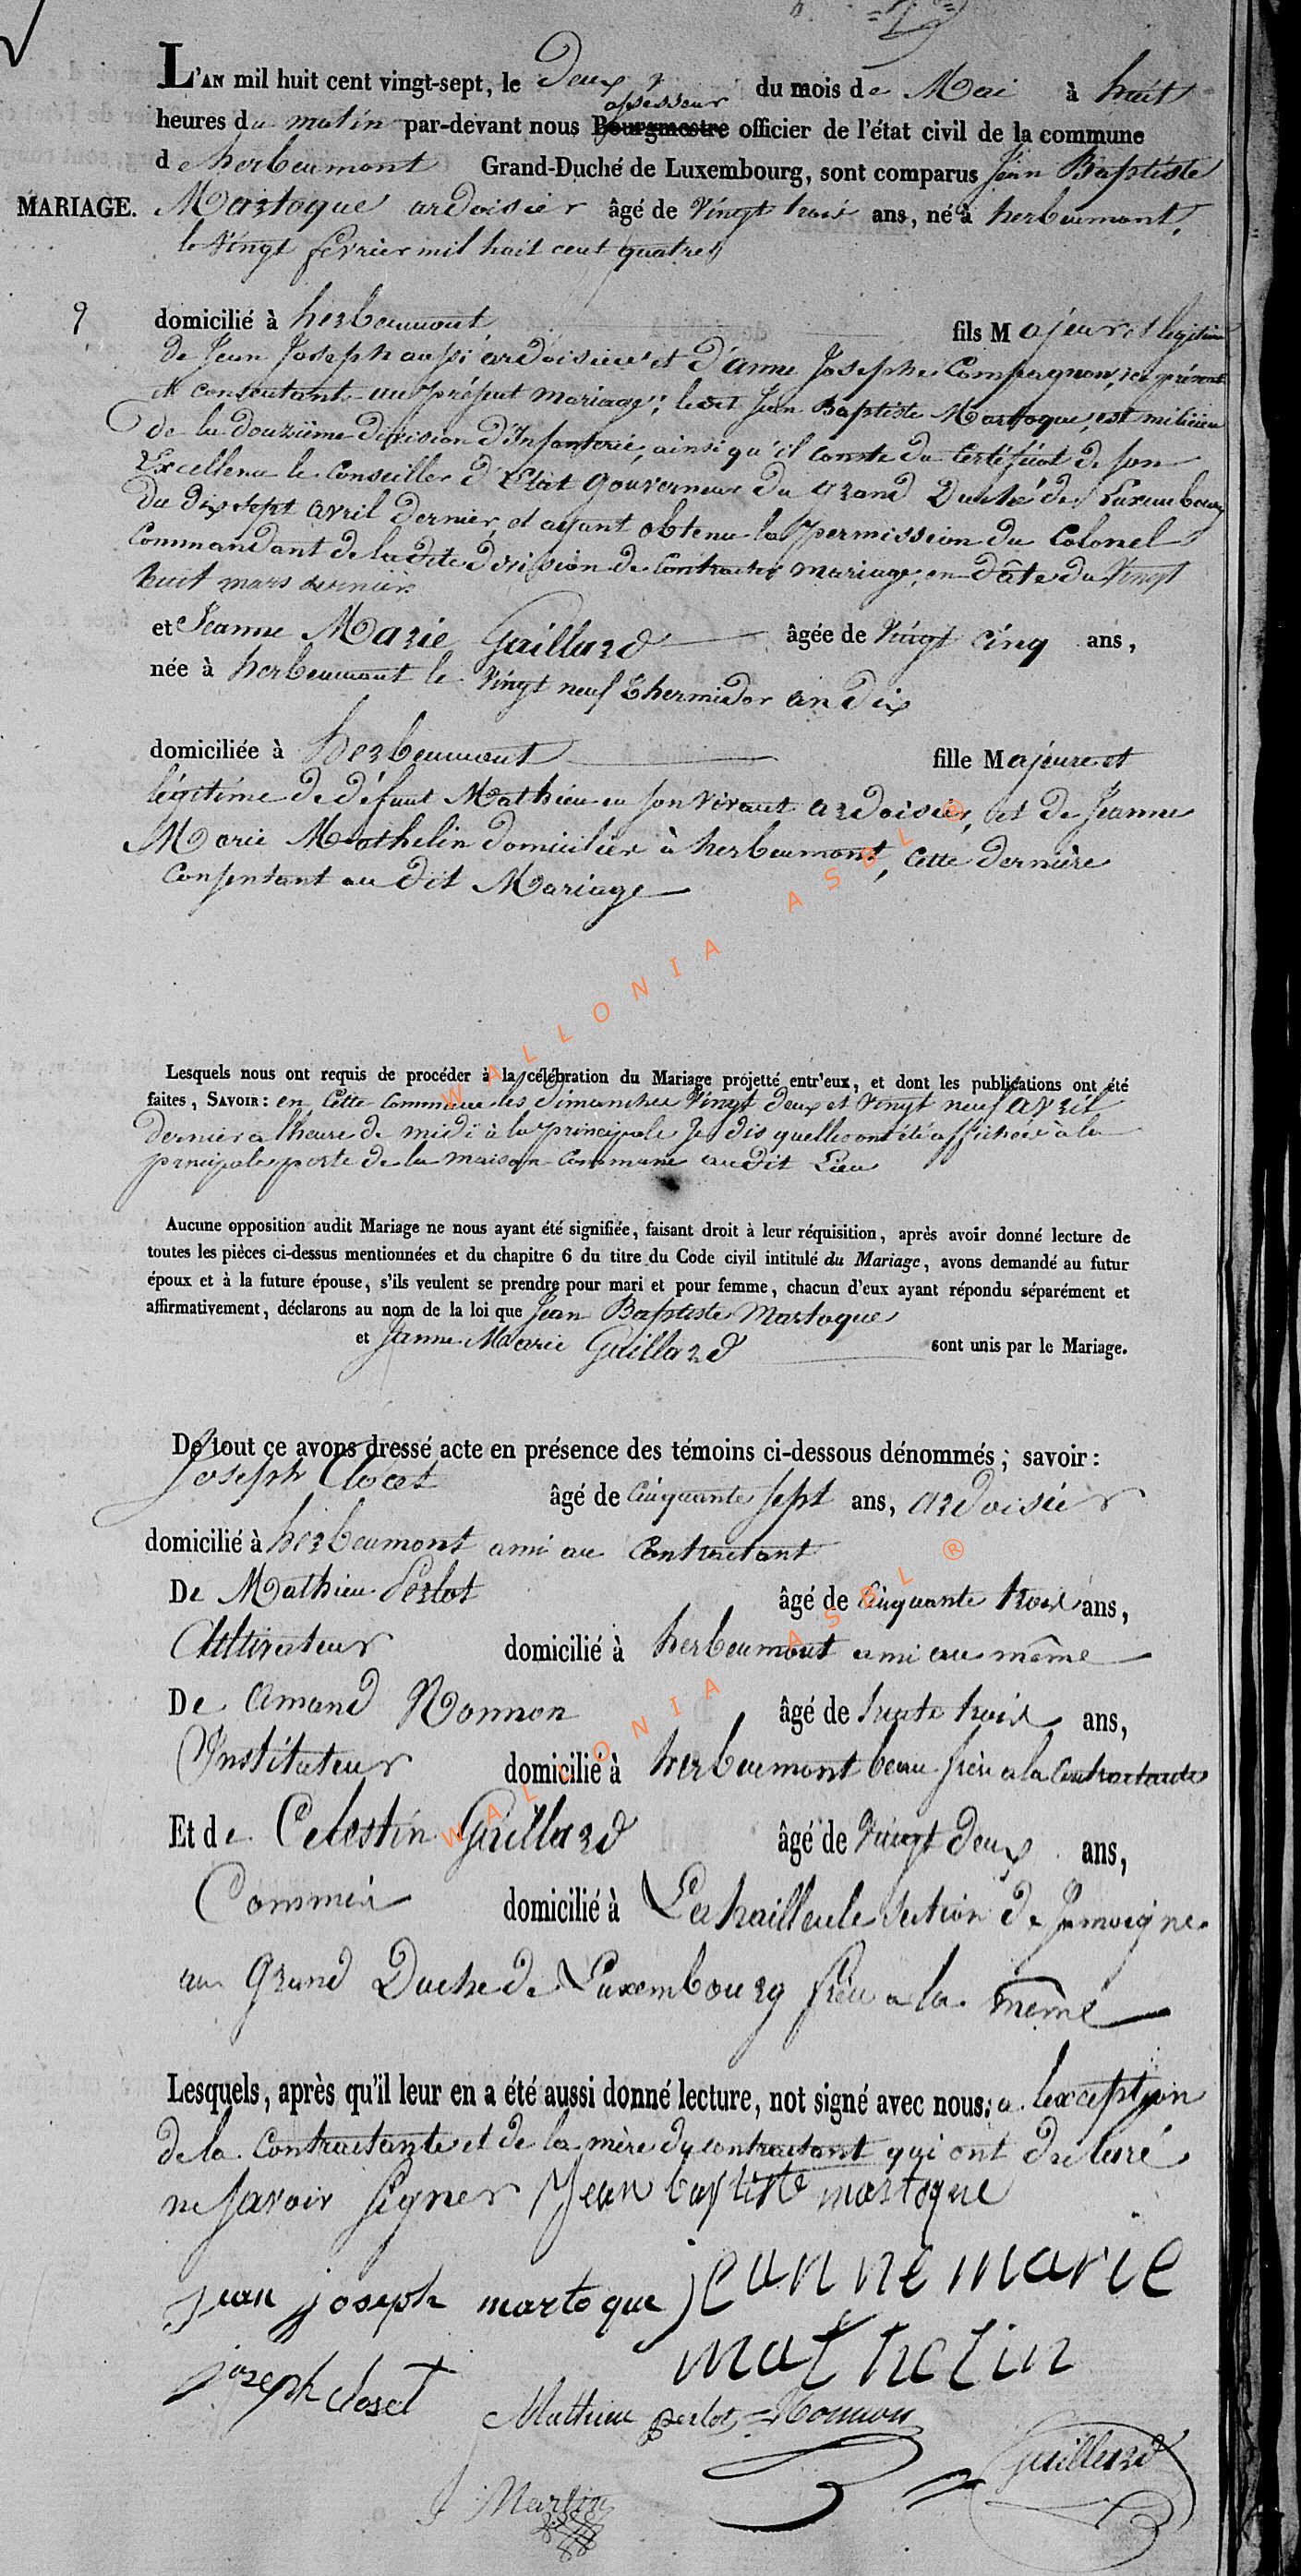 L'AN mil huit cent vingt-sept, le Deux du mois de Mai à huit
assesseur
heures du matin par-devant nous Bourgmestre officier de l'état civil de la commune
de herbeumont Grand-Duché de Luxembourg, sont comparus Jean Baptiste
MARIAGE. Martoque ardoisier âgé de Vingt trois ans, né à herbeumont,
le Vingt fevrier mil huit cent quatre
9
domicilié à herbeumont fils Majeur et legitime
de Jean Joseph aussi ardoisier et d'anne Josephe Compagnon, ici présent
et consentant au présent mariage; ledit Jean Baptiste Martoque, est milicien
de la douzième division d'Infanterie, ainsi qu'il conste du Certificat de son
Excellence le Conseiller d'Etat Gouverneur du Grand Duché de Luxembourg
du dix sept avril dernier, et ayant obtenu la permission du Colonel
Commandant de la dite division de Contracter mariage, en dâte du Vingt
huit mars dernier.
et Jeanne Marie Guillard âgée de Vingt cinq ans,
née à herbeumont le Vingt neuf thermidor an dix
domiciliée à herbeumont fille Majeure et
légitime de défunt Mathieu en son vivant ardoisier, et de Jeanne
Marie Mathelin domiciliée à herbeumont, cette dernière
Consentant au dit Mariage
Lesquels nous ont requis de procéder à la célébration du Mariage projetté entr'eux, et dont les publications ont été
faites, SAVOIR: en Cette Commune les dimanches Vingt deux et Vingt neuf avril
dernier a l'heure de midi à la principale Je dis quelles ont été affichées à la
principale porte de la maison Commune audit Lieu
Aucune opposition audit Mariage ne nous ayant été signifiée, faisant droit à leur réquisition, après avoir donné lecture de
toutes les pièces ci-dessus mentionnées et du chapitre 6 du titre du Code civil intitulé du Mariage, avons demandé au futur
époux et à la future épouse, s'ils veulent se prendre pour mari et pour femme, chacun d'eux ayant répondu séparément et
affirmativement, déclarons au nom de la loi que Jean Baptiste Martoque
et Jeanne Marie Guillard sont unis par le Mariage.
De tout ce avons dressé acte en présence des témoins ci-dessous dénommés; savoir:
Joseph Closet âgé de Cinquante sept ans, ardoisier
domicilié à herbeumont ami au Contractant
De Mathieu Perlot âgé de Cinquante trois ans,
Cultivateur domicilié à herbeumont ami au même
De Amand Nonnon âgé de trente trois ans,
Instituteur domicilié à herbeumont beau frère a la Contractante
Et de Celestin Guillard âgé de Vingt deux ans,
Commis domicilié à section de Jamoigne
au Grand Duché de Luxembourg frère a la même
Lesquels, après qu'il leur en a été aussi donné lecture, not signé avec nous; a lexception
de la Contractante et de la mère du contractant qui ont declaré
ne savoir signer Jean baptiste martoque
jean joseph martoque jeanne marie
mathelin
joseph closet
Mathieu perlot Nonnon
Guillard
J. Martin
WALLONIA ASBL ®
WALLONIA ASBL ®